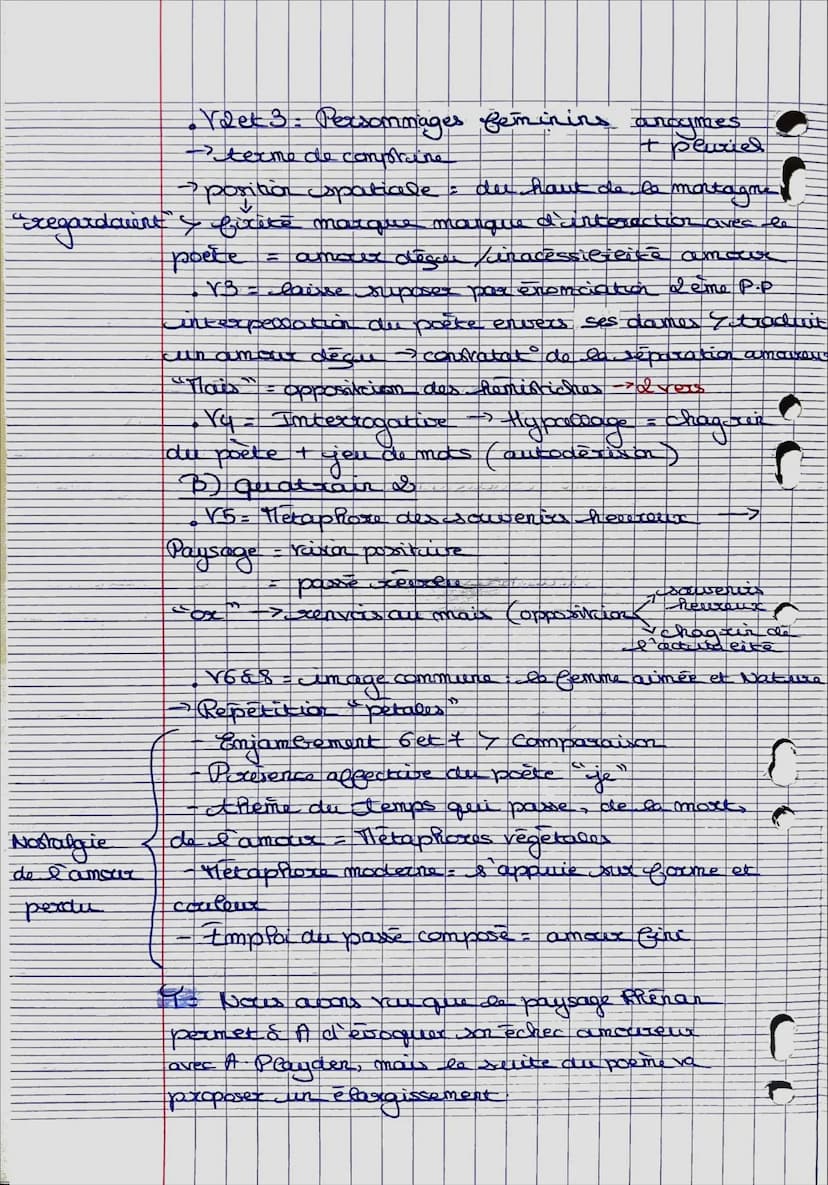 . V2 et 3 = Personnages féminins anoymes
+ pluriel
→ terme de comptine
→ position spatiale = du haut de la montagne
"regardaient" > fixité marque manque d'interaction avec le
poète = amour déçu / inacessibileité amour
. V3 = laisse suposer par énonciation 2ème P.P
interpellation du poète envers ses dames > traduit
un amour déçu → constatat° de la séparation amoureuse
"Mais" = opposition des hémistiches → 2 vers
. V4 = Interrogative → Hypallage = chagrin
du poète + jeu de mots (autodérision)
B) quatrain 2
. V5 = Métaphore des souvenirs heureux →
Paysage = vision positive
= passé révolu
"or" → renvois au mais (opposition
souvenirs
heureux
chagrin de
l'actualité
. V6&8 = image commune : la femme aimée et Nature
→ Répétition "pétales"
- Enjambement 6 et 7 > Comparaison
- Présence affective du poète "je"
- thème du temps qui passe, de la mort,
Nostalgie
de l'amour
perdu
de l'amour = Métaphores végétales
- Métaphore moderne = s'appuie sur forme et
couleur
- Emploi du passé composé = amour fini
T = Nous avons vu que le paysage Rhénan
permet à A d'évoquer son échec amoureux
avec A. Playden, mais la suite du poème va
proposer un élargissement.